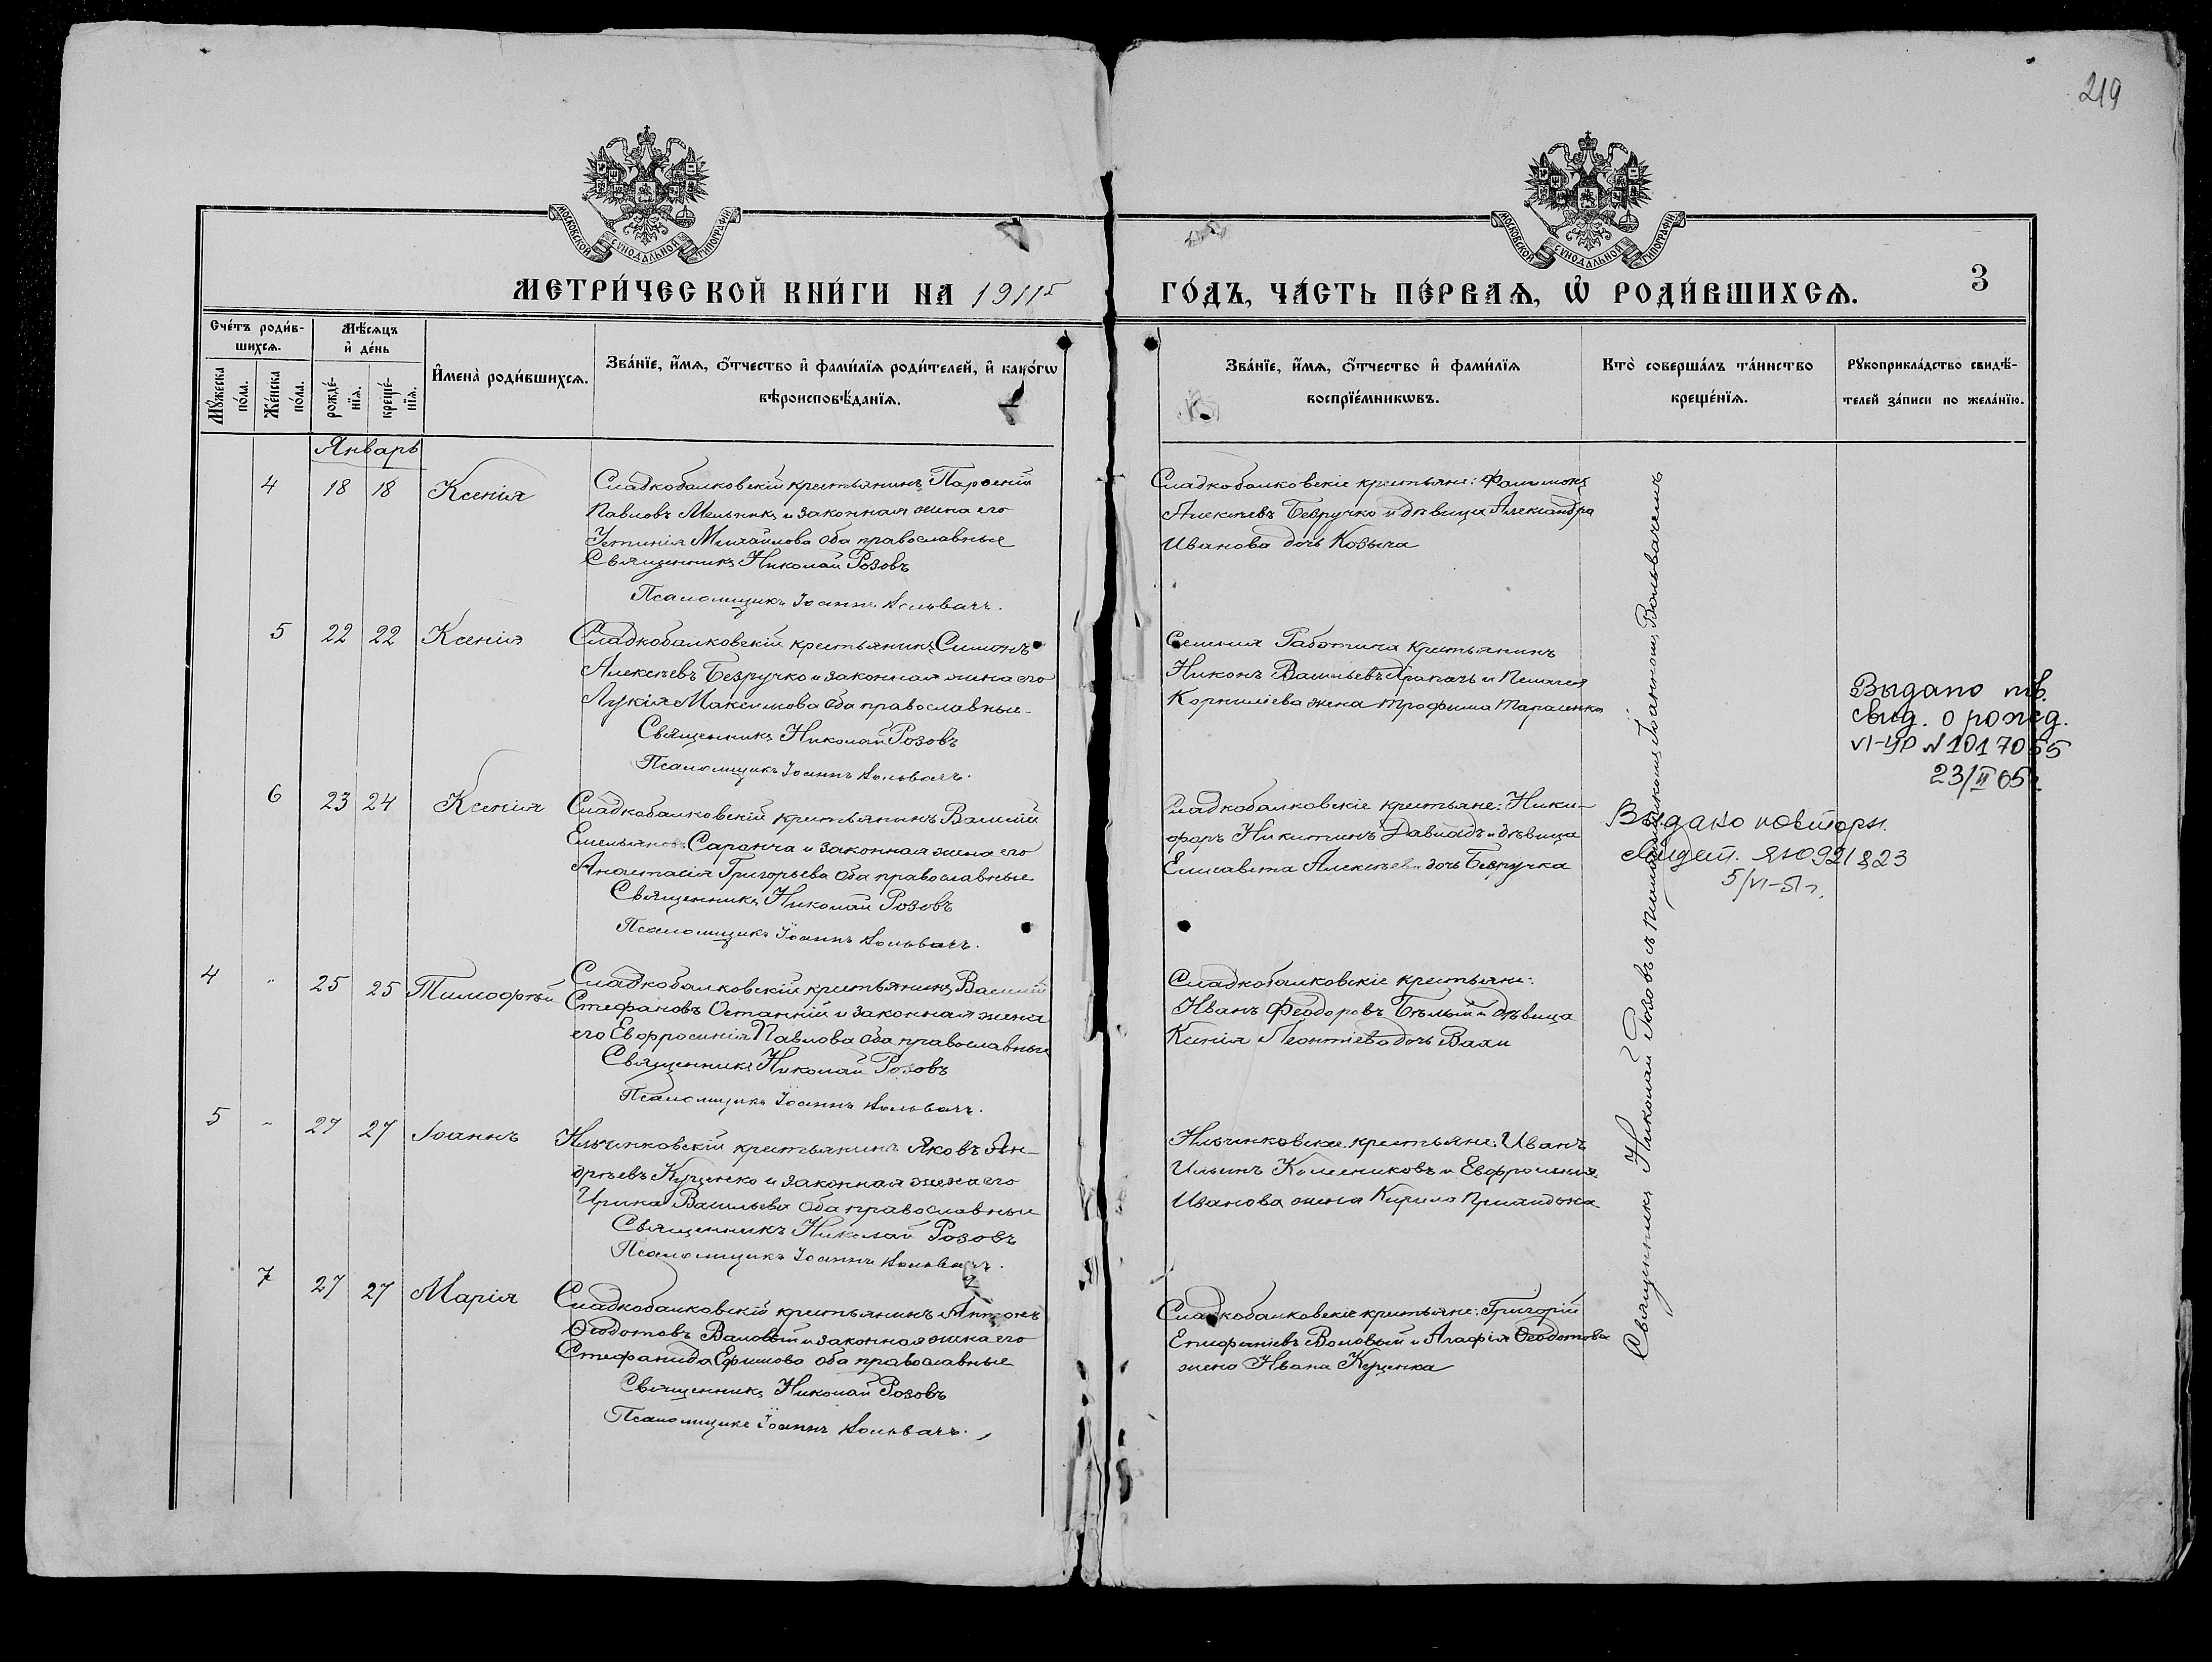 219
МОСКОВСКОЙ СУНОДАЛЬНОЙ ТИПОГРАФІИ
МОСКОВСКОЙ СУНОДАЛЬНОЙ ТИПОГРАФІИ
МЕТРИ́ЧЕСКОЙ КНИ́ГИ НА 1911
ГО́ДЪ, ЧА́СТЬ ПЕ́РВАѦ, Ѡ҆ РОДИ́ВШИХСѦ.
3
Счéтъ роди́в-
шихсѧ.
Мꙋ́жеска по́ла.
Же́нска по́ла.
Мѣ́сѧцъ
и҆ де́нь
рожде́-
нїѧ.
креще́-
нїѧ.
И҆мена̀ роди́вшихсѧ.
Зва́нїе, и҆́мѧ, ѻ҆́тчество и҆ фами́лїѧ роди́телей, и҆ како́гѡ
вѣроисповѣ́данїѧ.
Зва́нїе, и҆́мѧ, ѻ҆́тчество и҆ фами́лїѧ
воспрїе́мникѡвъ.
Кто̀ соверша́лъ та́инство
креще́нїѧ.
Рꙋкоприкла́дство свидѣ́-
телей за́писи по жела́нїю.
Январь
4 18 18 Ксенія
Сладкобалковскій крестьянинъ Парѳеній
Павловъ Мельникъ и законная жена его
Устинія Михайлова оба православные
Священникъ Николай Розовъ
Псаломщикъ Іоаннъ Вольвачъ.
Сладкобалковскіе крестьяне: Филимонъ
Алексѣевъ Безручко и дѣвица Александра
Иванова дочь Козыча
5 22 22 Ксенія
Сладкобалковскій крестьянинъ Симонъ
Алексѣевъ Безручко и законная жена его
Лукія Максимова оба православные
Священникъ Николай Розовъ
Псаломщикъ Іоаннъ Вольвачъ.
крестьянинъ
Никонъ Васильевъ и Пелагея
Корниліева жена Трофима Тарасенко
Выдано
свид. о рожд.
VI-УР N 1017055
23/II 65г.
6 23 24 Ксенія
Сладкобалковскій крестьянинъ Василій
Емельяновъ Саранча и законная жена его
Анастасія Григорьева оба православные
Священникъ Николай Розовъ
Псаломщикъ Іоаннъ Вольвачъ.
Сладкобалковскіе крестьяне: Ники-
форъ Никитинъ и дѣвица
Елисавета Алексѣева дочь Безручка
Выдано повторн.
свидет. ЯЮ 921823
5/VI-51г.
4 " 25 25 Тимоѳей
Сладкобалковскій крестьянинъ Василій
Стефановъ Останній и законная жена
его Евфросинія Павлова оба православные
Священникъ Николай Розовъ
Псаломщикъ Іоаннъ Вольвачъ.
Сладкобалковскіе крестьяне:
Иванъ Феодоровъ Бѣлый и дѣвица
Ксенія Леонтіева дочь
5 " 27 27 Іоаннъ
Ильчинковскій крестьянинъ Яковъ Ан-
дреевъ Куценко и законная жена его
Ирина Васильева оба православные
Священникъ Николай Розовъ
Псаломщикъ Іоаннъ Вольвачъ.
Ильчинковскіе крестьяне: Иванъ
Ильинъ Колесниковъ и Евфросинія
Иванова жена Кирила
7 27 27 Марія
Сладкобалковскій крестьянинъ Антонъ
Ѳеодотовъ Валовый и законная жена его
Стефанида Ефимова оба православные
Священникъ Николай Розовъ
Псаломщикъ Іоаннъ Вольвачъ.
Сладкобалковскіе крестьяне: Григорій
Епифаніевъ Воловый и Агафія Ѳеодотова
жена Ивана Куценка
Священникъ Николай Розовъ съ псаломщикомъ Іоанномъ Вольвачемъ